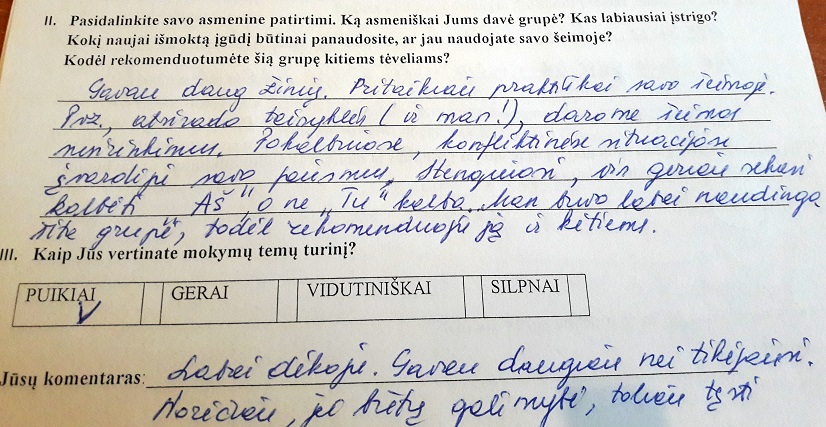 II. Pasidalinkite savo asmenine patirtimi. Ką asmeniškai Jums davė grupė? Kas labiausiai įstrigo?
Kokį naujai išmoktą įgūdį būtinai panaudosite, ar jau naudojate savo šeimoje?
Kodėl rekomenduotumėte šią grupę kitiems tėveliams?
Gavau daug žinių. Pritaikiau praktiškai savo šeimoje.
Pvz., atsirado taisyklės (ir man!), darome šeimos
susirinkimus. Pokalbiuose, konfliktinėse situacijose
įvardiju savo jausmus, stengiuosi, vis geriau sekasi
kalbėti „Aš“ o ne „Tu“ kalba. Man buvo labai naudinga
šita grupė, todėl rekomenduoju ją ir kitiems.
III. Kaip Jūs vertinate mokymų temų turinį?
PUIKIAI V GERAI VIDUTINIŠKAI SILPNAI
Jūsų komentaras: Labai dėkoju. Gavau daugiau nei tikėjausi.
Norėčiau, jei būtų galimybė, toliau tęsti